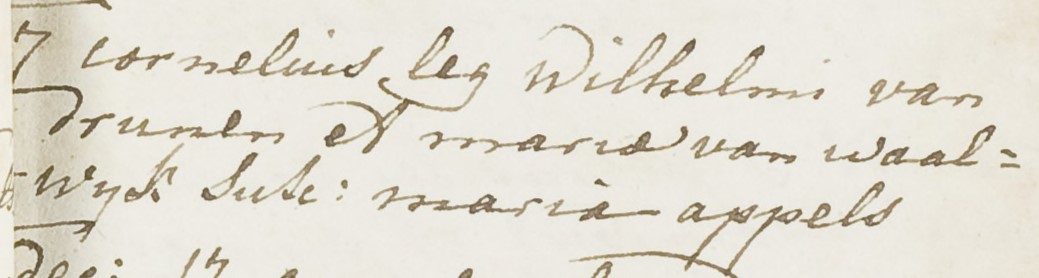 7 cornelius leg Wilhelmi van
drunen et mariæ van waal=
wyk Susc: maria appels
17